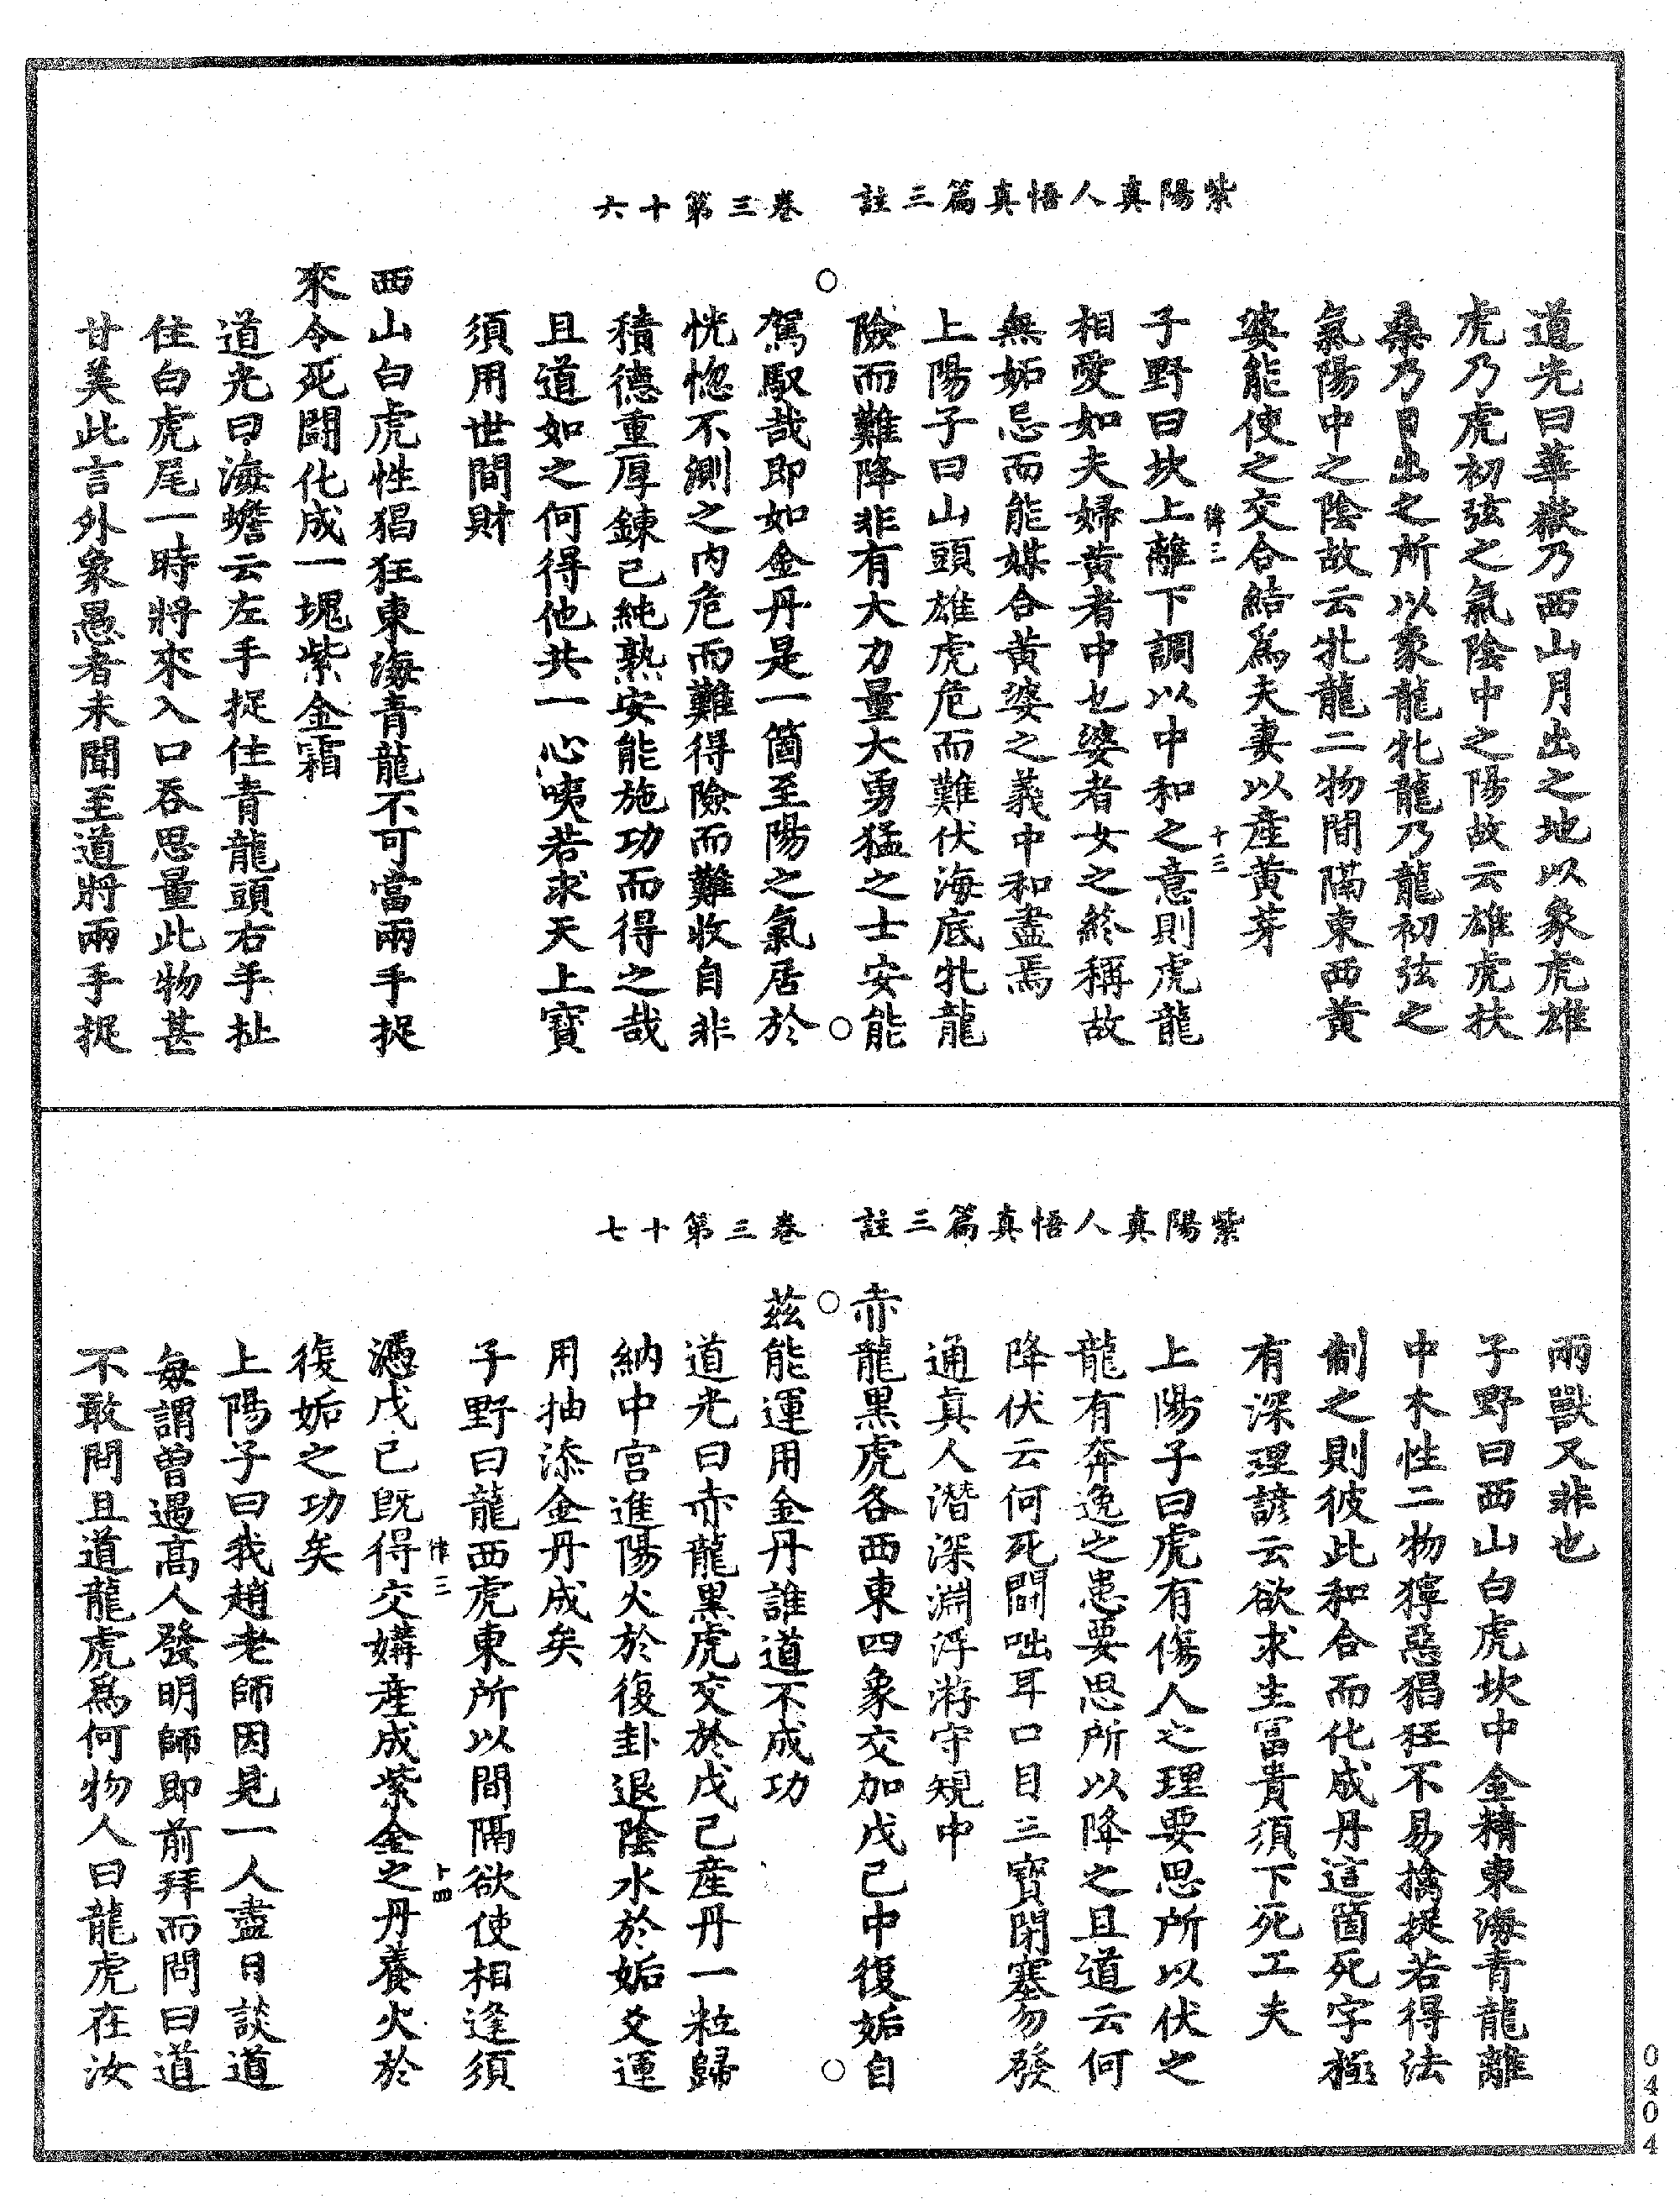 紫陽真人悟真篇三註　卷三第十六
道光曰華嶽乃西山月出之地以象虎雄
虎乃虎初弦之氣陰中之陽故云雄虎扶
桑乃日出之所以象龍牝龍乃龍初弦之
氣陽中之陰故云牝龍二物間隔東西黃
婆能使之交合結爲夫妻以產黃芽
律三　十三
子野曰坎上離下調以中和之意則虎龍
相愛如夫婦黃者中也婆者女之終稱故
無妬忌而能媒合黃婆之義中和盡焉
上陽子曰山頭雄虎危而難伏海底牝龍
險而難降非有大力量大勇猛之士安能
○　○
駕馭哉即如金丹是一箇至陽之氣居於
恍惚不測之內危而難得險而難收自非
積德重厚鍊己純熟安能施功而得之哉
且道如之何得他共一心咦若求天上寶
須用世間財
西山白虎性猖狂東海青龍不可當兩手捉
來令死鬪化成一塊紫金霜
道光曰海蟾云左手捉住青龍頭右手扯
住白虎尾一時將來入口吞思量此物甚
甘美此言外象愚者未聞至道將兩手捉
紫陽真人悟真篇三註　卷三第十七
兩獸又非也
子野曰西山白虎坎中金精東海青龍離
中木性二物獰惡猖狂不易擒捉若得法
制之則彼此和合而化成丹這箇死字極
有深理諺云欲求生富貴須下死工夫
上陽子曰虎有傷人之理要思所以伏之
龍有奔逸之患要思所以降之且道云何
降伏云何死鬪咄耳口目三寶閉塞勿發
通真人潛深淵浮游守規中
赤龍黑虎各西東四象交加戊己中復姤自
○　○
茲能運用金丹誰道不成功
道光曰赤龍黑虎交於戊己產丹一粒歸
納中宮進陽火於復卦退陰水於姤爻運
用抽添金丹成矣
子野曰龍西虎東所以間隔欲使相逢須
律三　十四
憑戊己既得交媾產成紫金之丹養火於
復姤之功矣
上陽子曰我趙老師因見一人盡日談道
每謂曾遇高人發明師即前拜而問曰道
不敢問且道龍虎爲何物人曰龍虎在汝
0404